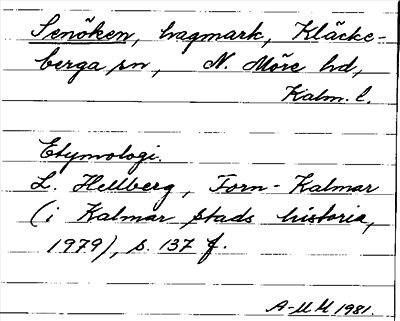 Senöken, hagmark, Kläcke-
berga sn, N. Möre hd,
Kalm. l.
Etymologi.
L. Hellberg, Forn-Kalmar
(i Kalmar stads historia,
1979), s. 137 f.
A-MM 1981.